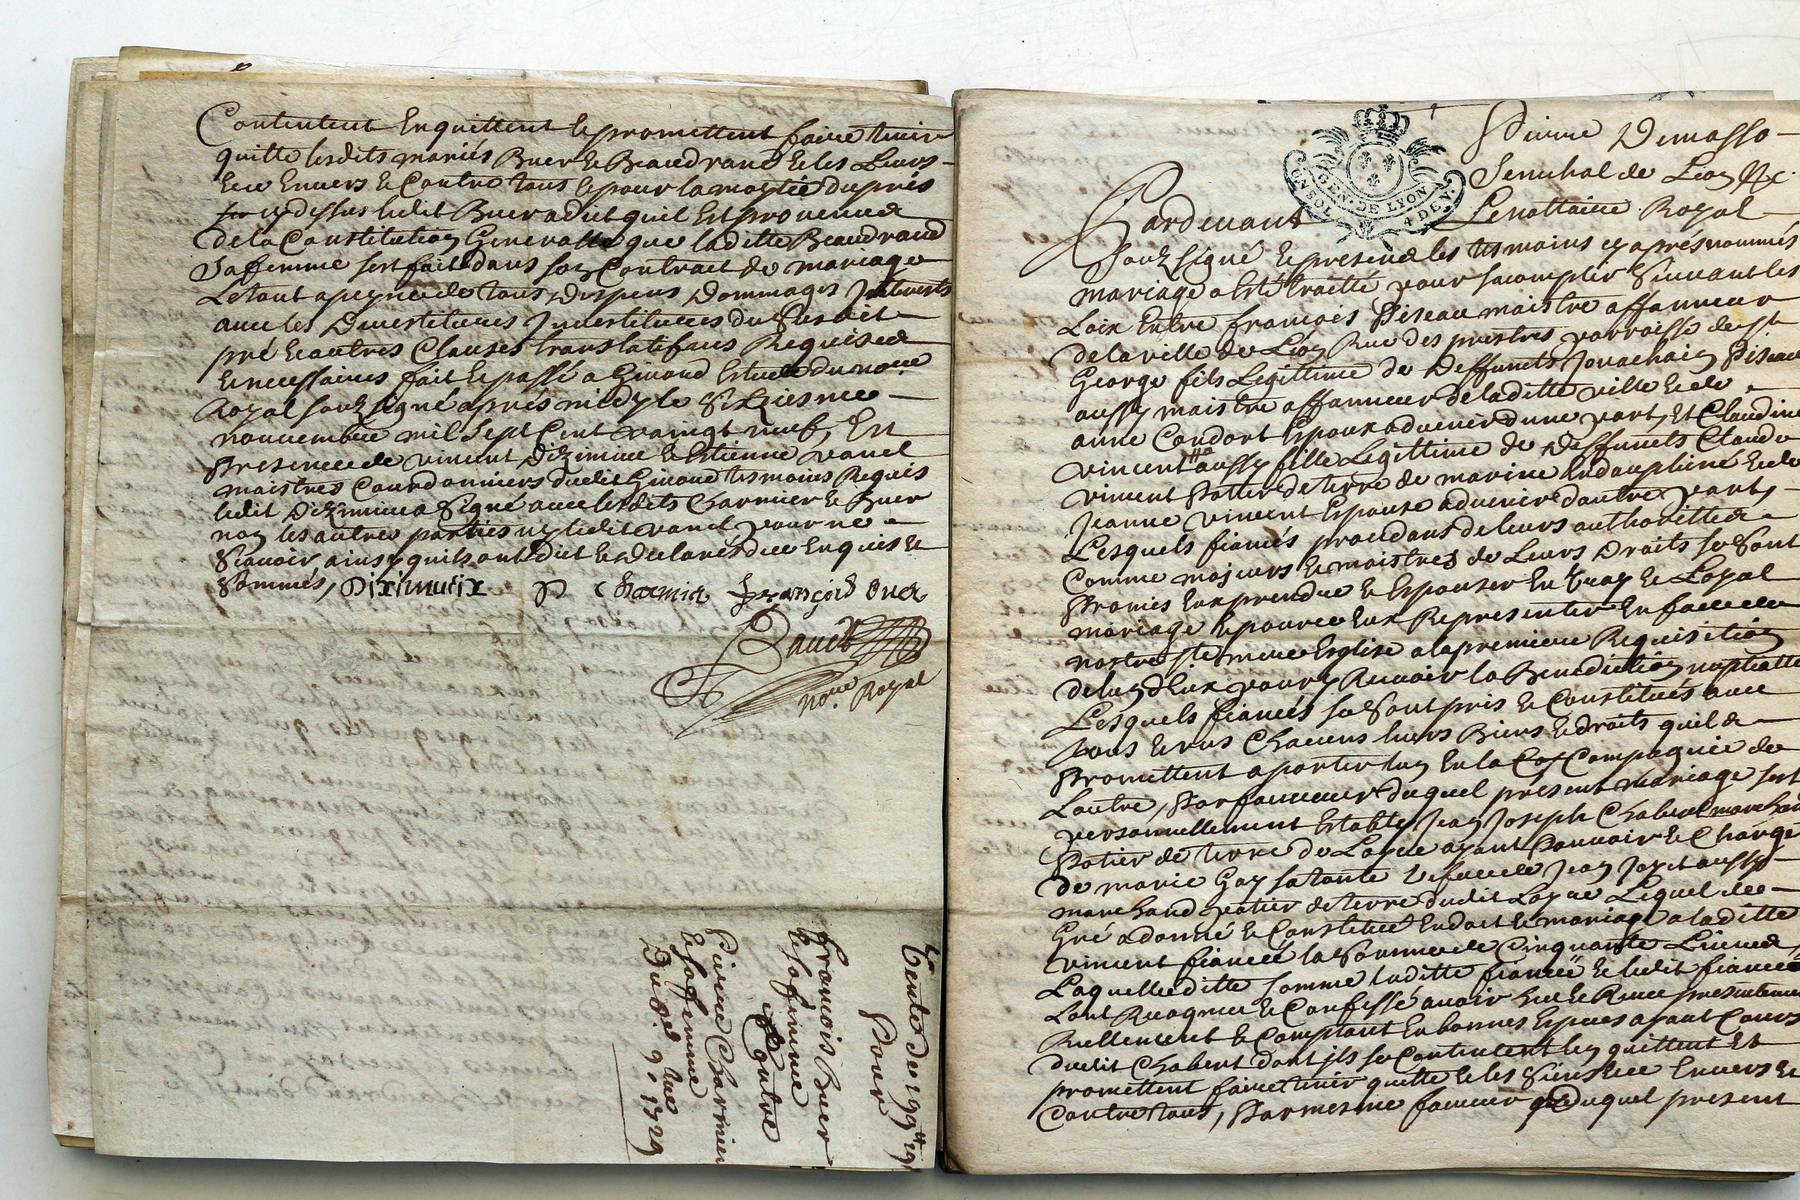 Contentent Enquittent Et promettent faire tenir
quitte lesdits mariés Buer Et Beaudrand Et les Leurs
Envers Et Contre tous Et pour la moytié du prés
cy dessus ledit Buer a dit quil Est provenue
de la Constitution Generalle que laditte Beaudrand
Saffemme sest faite dans son Contrat de mariage
Le tout a peyne de tous Despens Dommages Interests
avec les Devestitures Investitures dudit
pré Et autres Clauses translatifves Requises
Et necessaires fait Et passé a Givord Estude du no.re
Royal souz signé aprés midy le
nouvembre mil Sept Cent vaingt neuf, En
Presence de vincent Dizimieu Et Estienne vanel
maistres Courdonniers dudit Givord tesmoins Requis
ledit Dizimieu a Signé avec lesdits Charmier Et Buer
non les autres parties ny ledit vanel pour ne
Scavoir ainsy quils ont dit Et declarés de ce Enquis Et
Sommés,
P Charmier François Buer
no.re Royal
Vente de 199# 19
Pour
François Buer
Et saffemme
Contre
Pierre Charmier
Et saffemme
Du 9.bre 1729
Senechal de Lion &c.
GEN. DE LYON
UN SOL 4 DEN.
Pardevant Le nottaire Royal
souz signé Et presens les tesmoins cy aprés nommés
mariage a Esté traitté pour sacomplir Suivant les
Loix Entre françois Piseau maistre affanneur
de la ville de Lion Rue des prestres parroisse de S.t
George fils Legittime de Deffunts Jouachain Piseau
aussy maistre affanneur de laditte ville Et de
anne Condort Espoux advenir dune part, Et Claudine
vincent aussy fille Legittime de Deffunts Claude
vincent Potier de terre de En dauphiné Et de
Jeanne vincent Espouse advenir dautre part,
Lesquels fiancés procedans de leurs authorittés
Comme majeurs Et maistres de Leurs Droits se Sont
Promis Eux prendre Et Espouser En vray Et Loyal
mariage Et pource Eux Representer En face de
nostre S.te mere Esglise a la premiere Requisition
de lun dEux pour y Recevoir la Benediction nuptialle
Lesquels fiancés se Sont pris Et Constitués avec
tous Et uns Chacuns leurs Biens Et droits quils
Promettent aporter lun En la Compagnie de
Lautre, Par faveur duquel present mariage sest
personnellement Establi Jean Joseph Chabert marchand
Potier de terre de Loyre ayant Pouvoir Et Charge
de marie Gay sa tante vefve de Jean aussy
marchand potier de terre dudit Loyre Lequel de
Gré a donné Et Constitué En dot Et mariage a laditte
vincent fiancée la Somme de Cinquante Livres,
Laquelle ditte somme laditte fiancée Et ledit fiancé
ont Recognue Et Confessé avoir heu Et Receu presentement
Reellement Et Comptant En bonnes Especes ayant Cours
dudit Chabert dont ils se Contentent len quittent Et
promettent faire tenir quitte Et les Siens Envers Et
Contre tous, Par mesme faveur duquel present